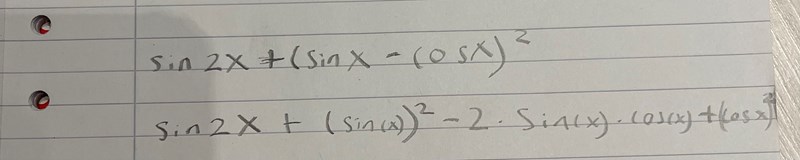 sin 2x + (sin x - cos x)²
sin 2x + (sin(x))² - 2 · sin(x) · cos(x) + (cos x)²